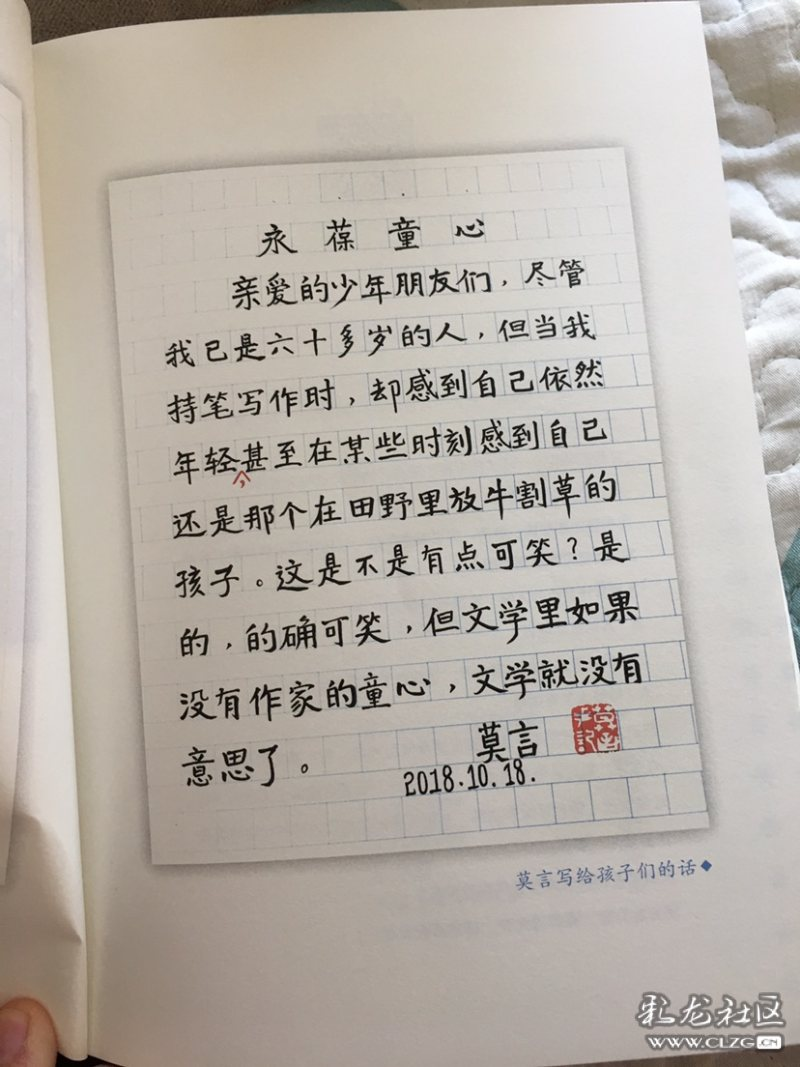 永葆童心
亲爱的少年朋友们，尽管
我已是六十多岁的人，但当我
持笔写作时，却感到自己依然
年轻，甚至在某些时刻感到自己
还是那个在田野里放牛割草的
孩子。这是不是有点可笑？是
的，的确可笑，但文学里如果
没有作家的童心，文学就没有
意思了。
莫言
2018.10.18.
莫言写给孩子们的话
彩龙社区
WWW.CLZG.CN